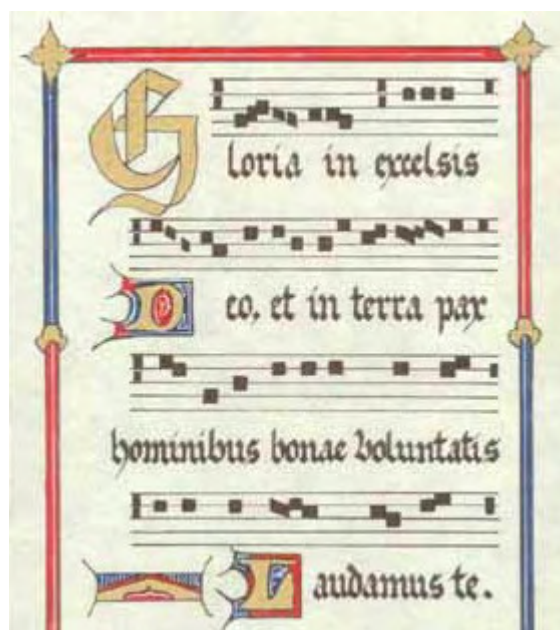 Gloria in excelsis
Deo, et in terra pax
hominibus bonae voluntatis
Laudamus te.